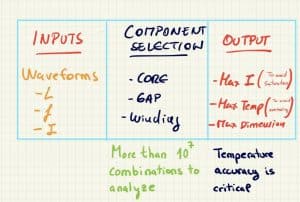 INPUTS
Waveforms
- L
- f
- I
COMPONENT
SELECTION
- CORE
- GAP
- Winding
OUTPUT
- Max I (To avoid
- Max Temp (To avoid
- Max Dimension
More than 10⁷
combinations to
analyze
Temperature
accuracy is
critical